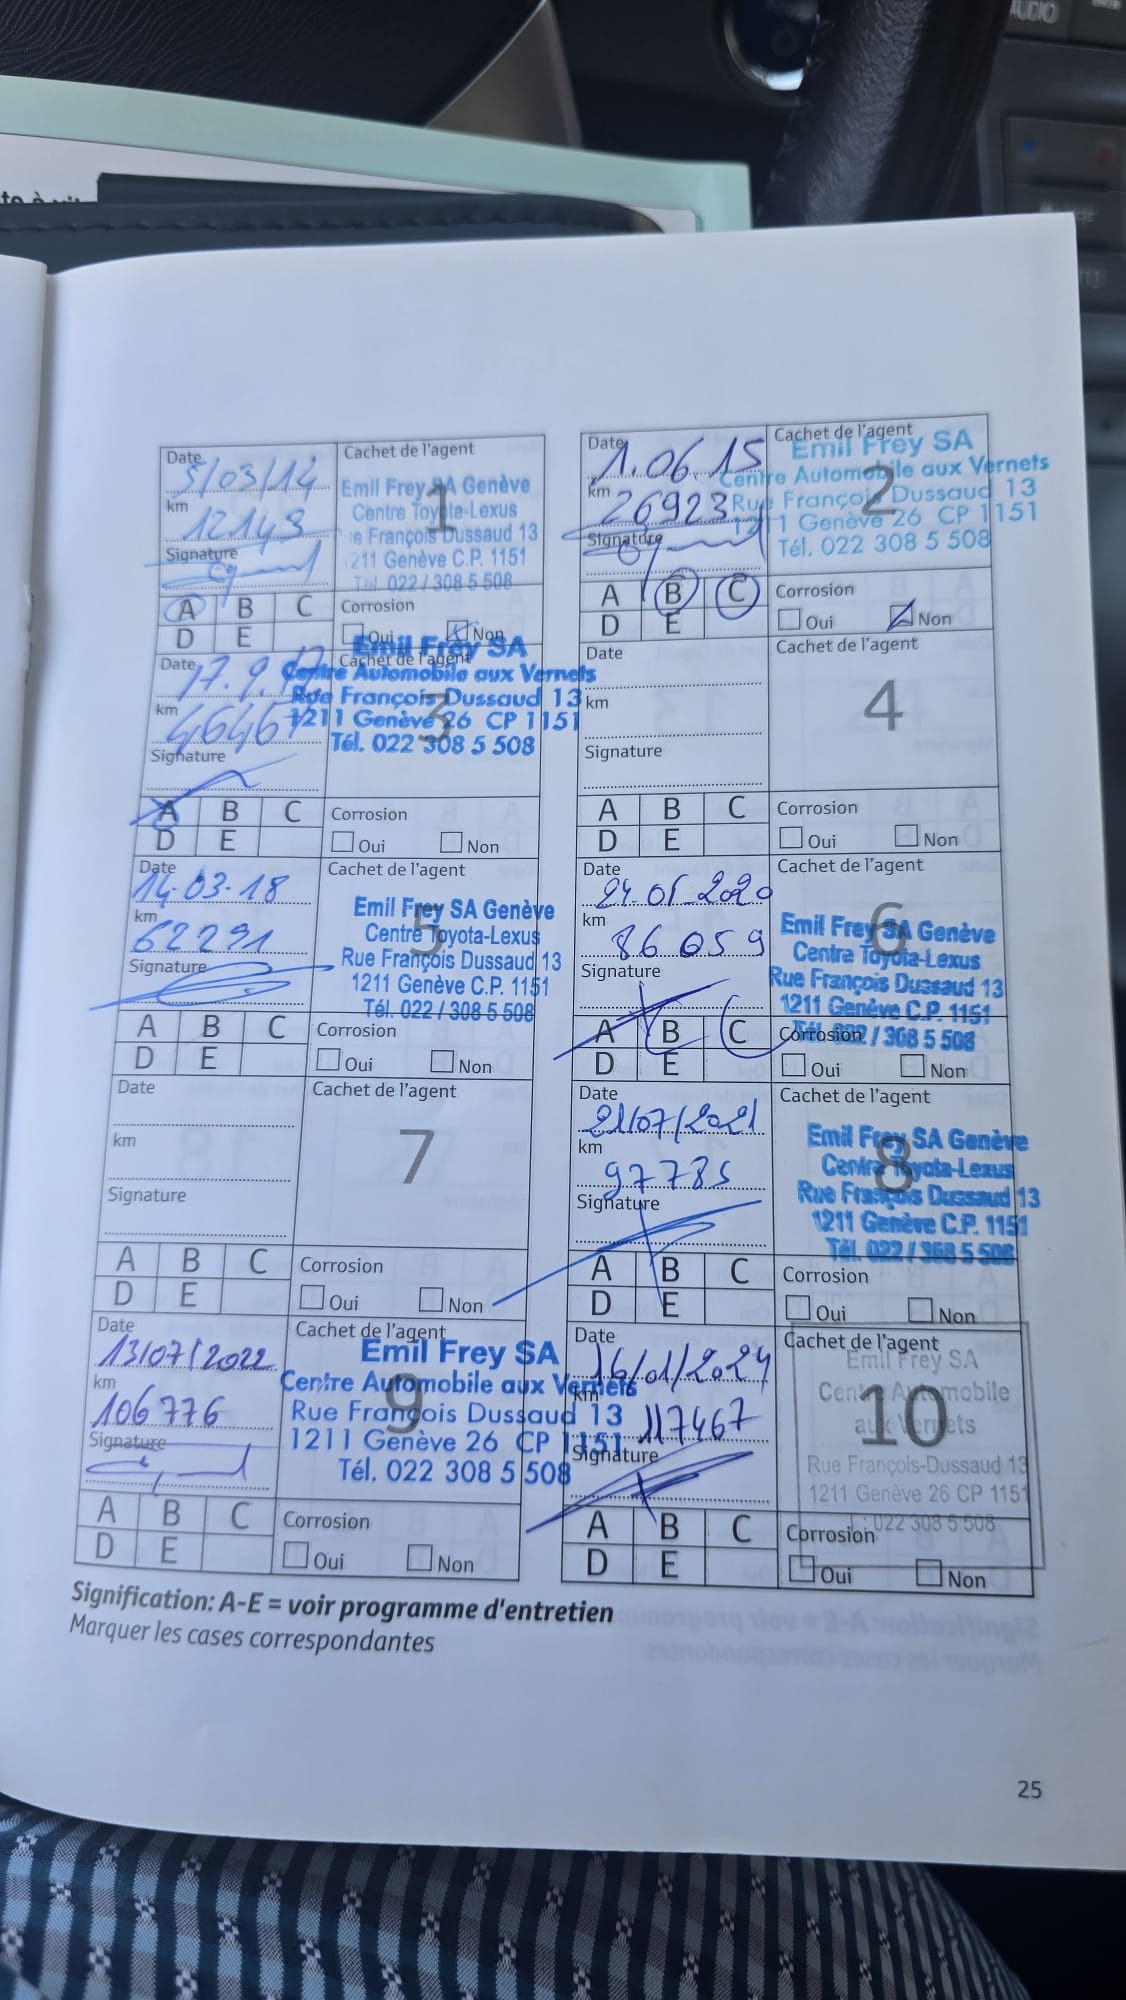 AUDIO
Date
5/03/14
km
12143
Signature
Cachet de l'agent
1
Emil Frey SA Genève
Centre Toyota-Lexus
François Dussaud 13
1211 Genève C.P. 1151
Tél. 022 / 308 5 508
A B C
D E
Corrosion
Oui Non
Date
1.06.15
km
26923
Signature
Cachet de l'agent
2
Emil Frey SA
Centre Automobile aux Vernets
Rue François Dussaud 13
1 Genève 26 CP 1151
Tél. 022 308 5 508
A B C
D E
Corrosion
Oui Non
Date
17.9.
km
Signature
Cachet de l'agent
3
Emil Frey SA
Centre Automobile aux Vernets
Rue François Dussaud 13
1211 Genève 26 CP 1151
Tél. 022 308 5 508
A B C
D E
Corrosion
Oui Non
Date
km
Signature
Cachet de l'agent
4
A B C
D E
Corrosion
Oui Non
Date
14-03-18
km
62291
Signature
Cachet de l'agent
5
Emil Frey SA Genève
Centre Toyota-Lexus
Rue François Dussaud 13
1211 Genève C.P. 1151
Tél. 022 / 308 5 508
A B C
D E
Corrosion
Oui Non
Date
km
86059
Signature
Cachet de l'agent
6
Emil Frey SA Genève
Centre Toyota-Lexus
Rue François Dussaud 13
1211 Genève C.P. 1151
Tél. 022 / 308 5 508
A B C
D E
Corrosion
Oui Non
Date
km
Signature
Cachet de l'agent
7
A B C
D E
Corrosion
Oui Non
Date
21/07/2021
km
97785
Signature
Cachet de l'agent
8
Emil Frey SA Genève
Centre Toyota-Lexus
Rue François Dussaud 13
1211 Genève C.P. 1151
Tél. 022 / 308 5 508
A B C
D E
Corrosion
Oui Non
Date
13/07/2022
km
106776
Signature
Cachet de l'agent
9
Emil Frey SA
Centre Automobile aux Vernets
Rue François Dussaud 13
1211 Genève 26 CP 1151
Tél. 022 308 5 508
A B C
D E
Corrosion
Oui Non
Date
16/01/2024
km
117467
Signature
Cachet de l'agent
10
Emil Frey SA
Centre Automobile
aux Vernets
Rue François-Dussaud 13
1211 Genève 26 CP 1151
022 308 5 508
A B C
D E
Corrosion
Oui Non
Signification: A-E = voir programme d'entretien
Marquer les cases correspondantes
25